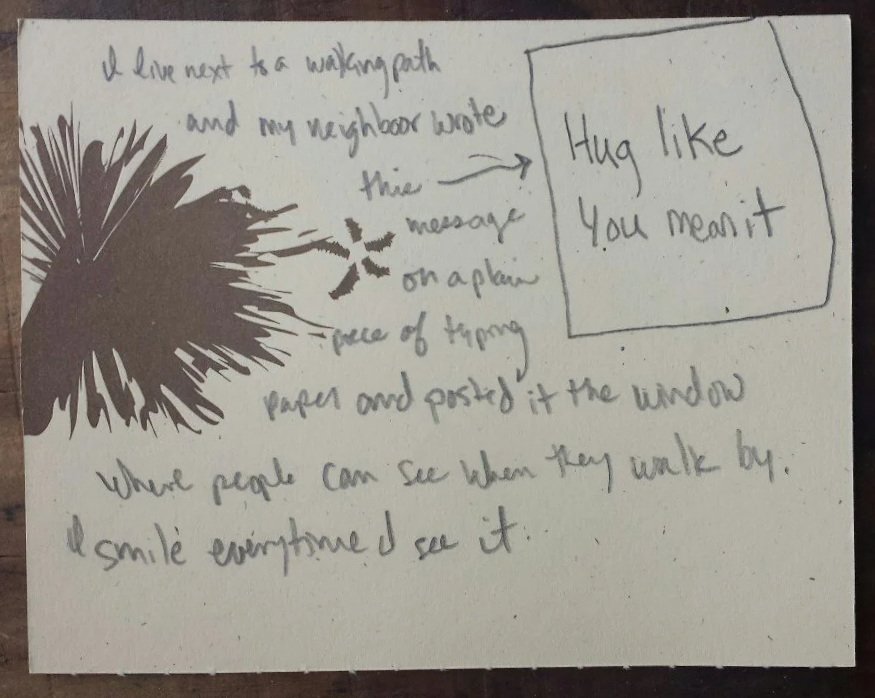 I live next to a walking path
and my neighbor wrote
this
message
on a plain
piece of typing
paper and posted it the window
where people can see when they walk by.
I smile everytime I see it.
Hug like
You mean it